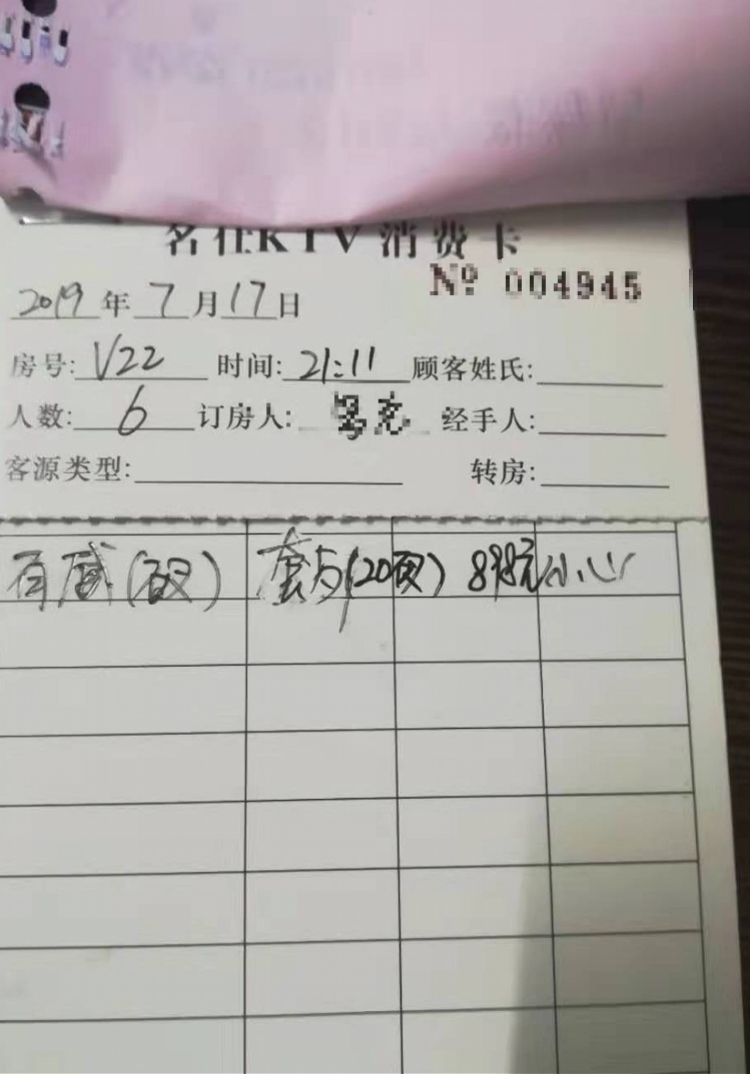 名仕KTV消费卡
№ 004945
2019年7月17日
房号: V22 时间: 21:11 顾客姓氏:
人数: 6 订房人: 经手人:
客源类型: 转房:
百威( ) 套 (20 ) 898元